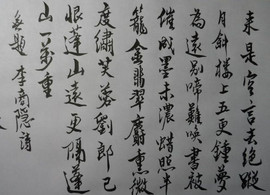 来是空言去絶蹤
月斜樓上五更鐘夢
為遠别啼難喚書被
催成墨未濃蜡照半
籠金翡翠麝熏微
度繡芙蓉劉郎已
恨蓬山遠更隔蓬
山一萬重
無題 李商隐詩